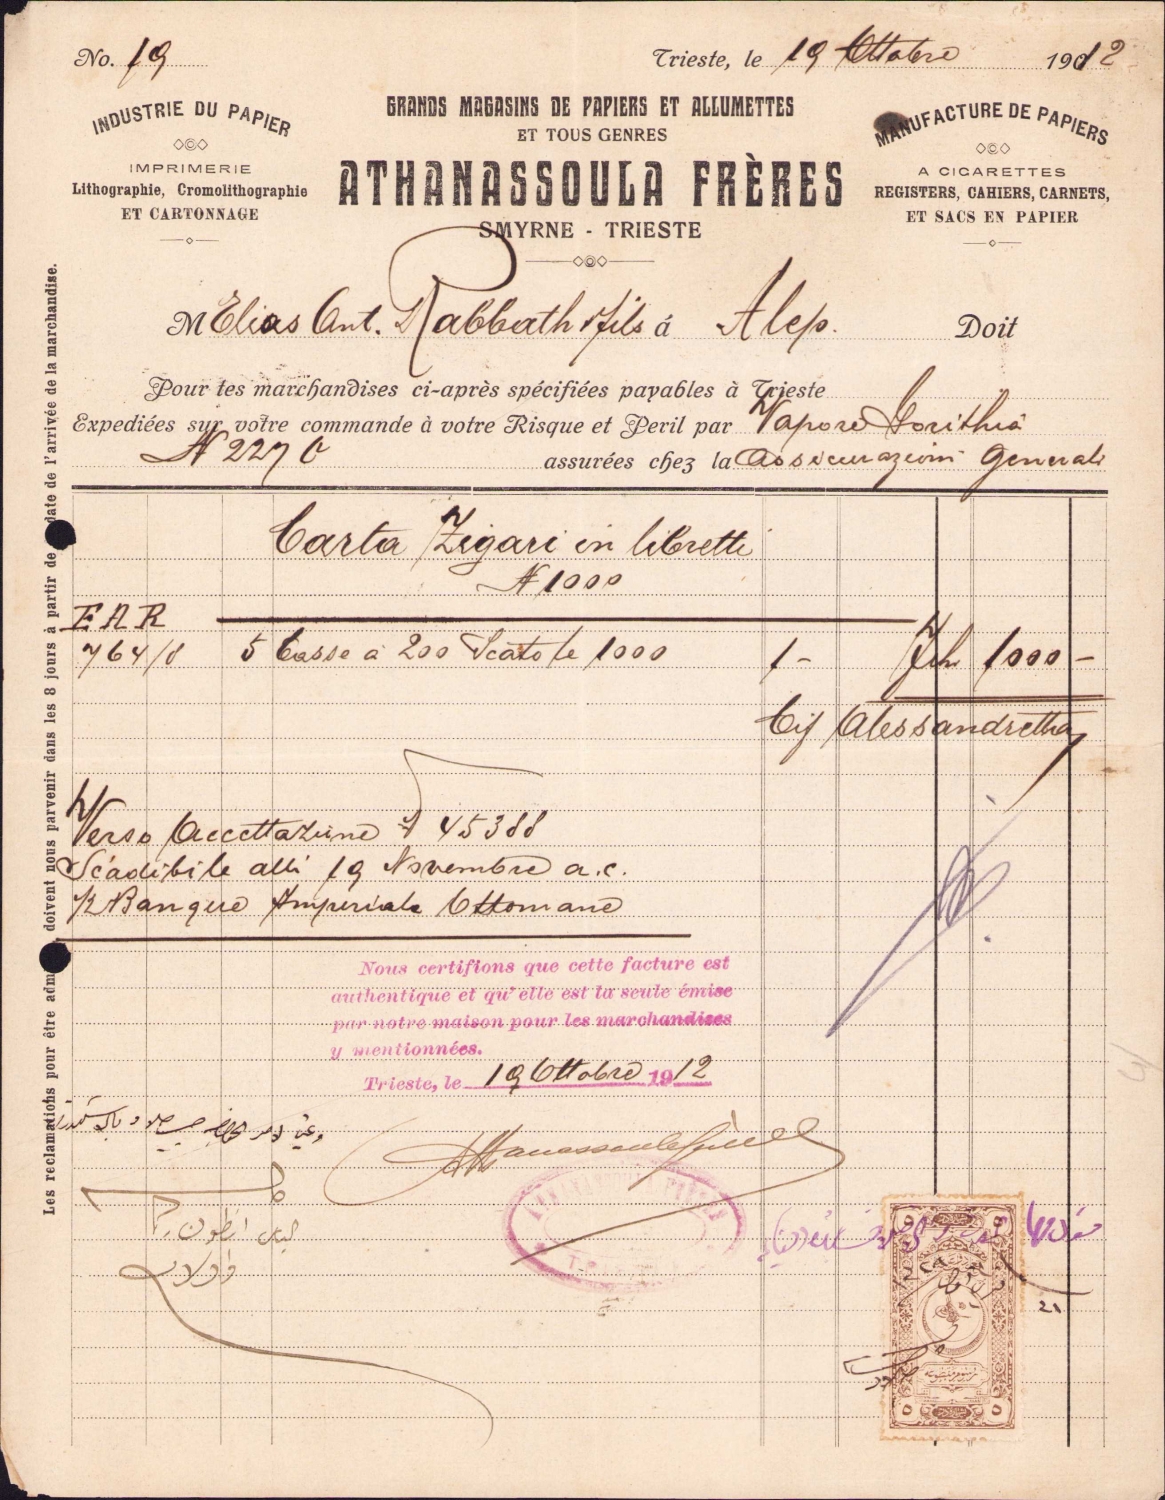 No. 19
Trieste, le 19 Ottobre 1912
INDUSTRIE DU PAPIER
IMPRIMERIE
Lithographie, Cromolithographie
ET CARTONNAGE
GRANDS MAGASINS DE PAPIERS ET ALLUMETTES
ET TOUS GENRES
ATHANASSOULA FRÈRES
SMYRNE - TRIESTE
MANUFACTURE DE PAPIERS
A CIGARETTES
REGISTERS, CAHIERS, CARNETS,
ET SACS EN PAPIER
M Elias Ant. Rabbath & fils á Alep. Doit
Pour les marchandises ci-après spécifiées payables à Trieste
Expediées sur votre commande à votre Risque et Peril par Vapore
N 227 C assurées chez la Assicurazioni Generali
Les reclamations pour être adm doivent nous parvenir dans les 8 jours à partir de date de l'arrivée de la marchandise.
Carta Zigari in libretti
N 1000
E A R
764/8 5 Casse a 200 Scatole 1000 1- 1000 -
Cif Alessandretta
Verso Accettazione N 45388
Scadibile alli 19 Novembre a.c.
Banque Imperiale Ottomane
Nous certifions que cette facture est
authentique et qu'elle est la seule émise
par notre maison pour les marchandises
y mentionnées.
Trieste, le 19 Ottobre 1912
Athanassoula Frères
الياس انطون رباط
واولاده
21